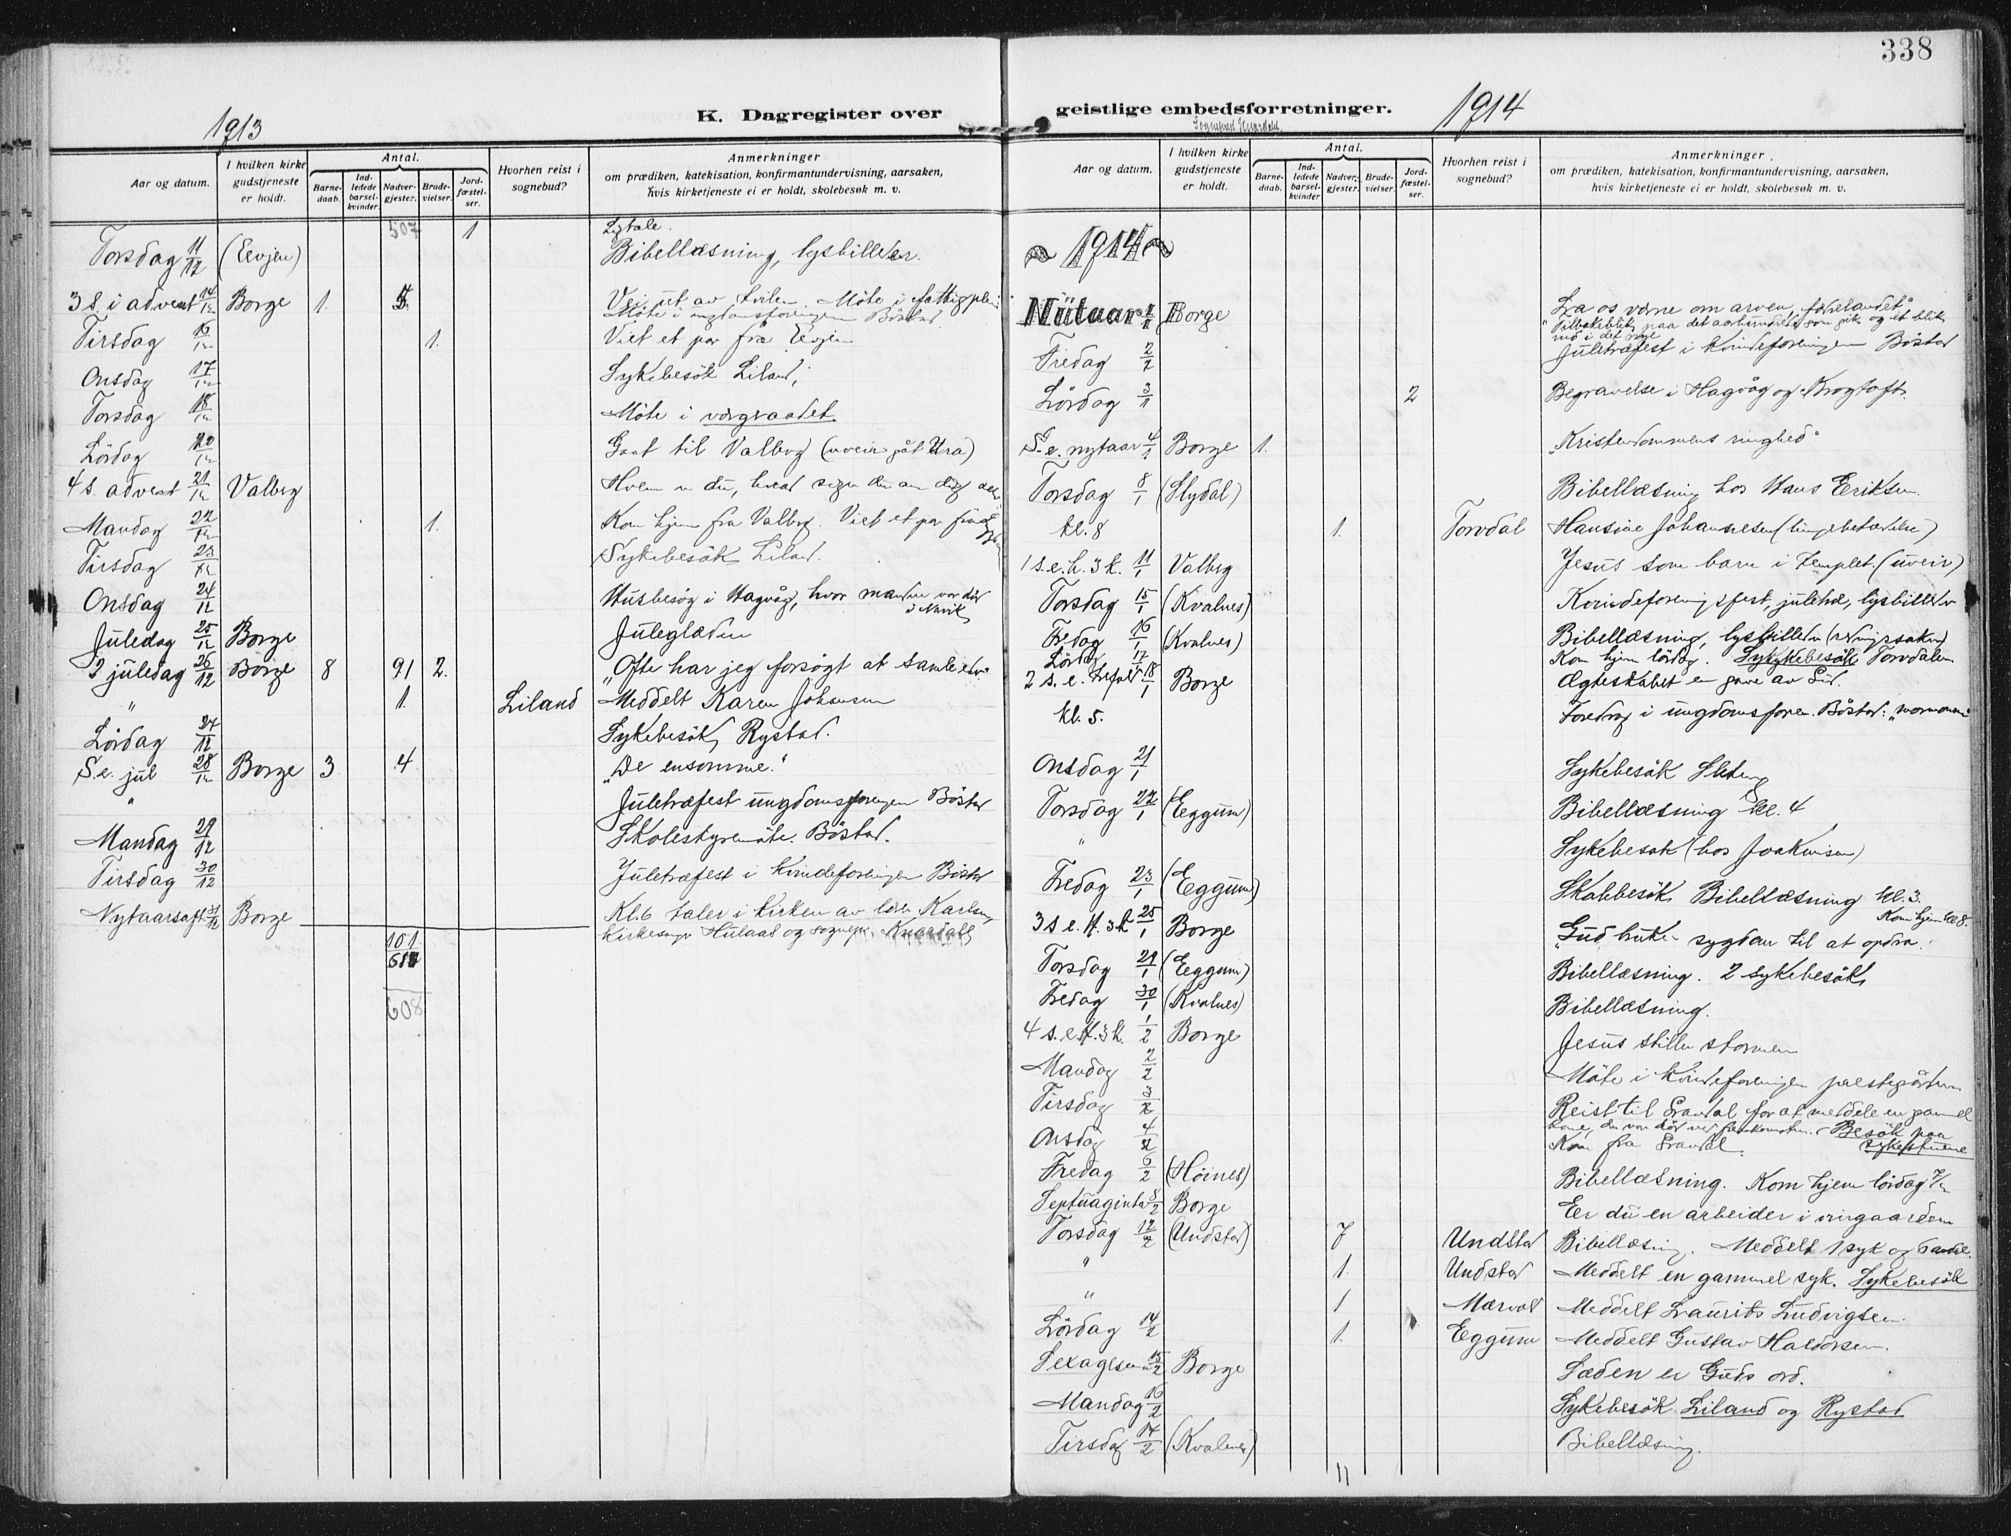 338
1913
K. Dagregister over
geistlige embedsforretninger.
1914
Aar og datum.
I hvilken kirke gudstjeneste er holdt.
Antal.
Barne-daab.
Ind-ledede barsel-kvinder.
Nadver-gjester.
Brude-vielser.
Jord-fæstel-ser.
Hvorhen reist i sognebud?
Anmerkninger
om prædiken, katekisation, konfirmantundervisning, aarsaken,
hvis kirketjeneste ei er holdt, skolebesøk m. v.
507 1
Torsdag 11/12 (Evjen) Bibellæsning, lysbilleder.
3 s. i advent 14/12 Borge 1.
Møte i ungdomsforeningen Bøstad
Tirsdag 16/12 1. Viet et par fra Evjen
Onsdag 17/12 Sykebesøk Liland,
Torsdag 18/12 Møte i vergeraadet.
Lördag 20/12 Gaat til Valberg (uveir
4 s. advent 21/12 Valberg Hvem er du, hvad siger du om dig selv
Mandag 22/12 1. Kom hjem fra Valberg. Viet et par fra
Tirsdag 23/12 Sykebesøk Liland.
Onsdag 24/12 Husbesøg i Hagvåg, hvor manden var död
i Narvik
Juledag 25/12 Borge Juleglæden
2 juledag 26/12 Borge 8 91 2. "Ofte har jeg forsøgt at samle eder
" 1. Liland Meddelt Karen Johansen
Lördag 27/12 Sykebesök, Rystad.
S. e. jul 28/12 Borge 3 4 "De ensomme."
" Juletræfest ungdomsforeningen Böstad
Mandag 29/12 Skolestyremöte. Böstad.
Tirsdag 30/12 Juletræfest i kvindeforeningen Böstad
Nytaarsaft 31/12 Borge Kl. 6 taler i kirken av lærer Karlsen,
kirkesanger Hulaas og sognepr.
101
608
Aar og datum.
I hvilken kirke gudstjeneste er holdt.
Antal.
Barne-daab.
Ind-ledede barsel-kvinder
Nadver-gjester.
Brude-vielser.
Jord-fæstel-ser.
Hvorhen reist i sognebud?
Anmerkninger.
om prædiken, katekisation, konfirmantundervisning, aarsaken,
hvis kirketjeneste ei er holdt, skolebesøk m. v.
~ 1914 ~
Nütaar 1/1 Borge La os værne om arven, fædrelandet"
Fredag 2/1 Juletræfest i kvindeforeningen Böstad
Lördag 3/1 2 Begravelse i Hagvåg og Krogtoft.
S. e. nytaar 4/1 Borge 1. "Kristendommens ringhed"
Torsdag 8/1 (Slydal) Bibellæsning hos Hans Eriksen.
kl. 8 1. Torvdal Hansine Johannesen
1 s. e. h. 3 k. 11/1 Valberg Jesus som barn i templet. (uveir)
Torsdag 15/1 (Kvalnes) Kvindeforeningsfest, juletræ, lysbilleder
Fredag 16/1 (Kvalnes) Bibellæsning, lysbilleder
Lördag 17/1 Kom hjem lördag. Sykebesök Torvdalen
2 s. e. 18/1 Borge Ægteskabet en gave av Gud.
kl. 5. Foredrag i ungdomsforen. Böstad:
Onsdag 21/1 Sykebesök
Torsdag 22/1 (Eggum) Bibellæsning kl. 4
" Sykebesøk (hos Joakimsen)
Fredag 23/1 (Eggum) Bibellæsning kl. 3.
Kom hjem kl 8.
3 s e. H. 3 k 25/1 Borge "Gud bruker sygdom til at opdra.
Torsdag 29/1 (Eggum) Bibellæsning. 2 sykebesök,
Fredag 30/1 (Kvalnes) Bibellæsning.
4 s. e. H. 3 k. 1/2 Borge Jesus stiller stormen
Mandag 2/2 Möte i kvindeforeningen præstegården
Tirsdag 3/2 Reist til Gravdal for at meddele en gammel
kone, der var död ved fremkomsten. Besök paa
Onsdag 4/2 Kom fra Gravdal. sykestuene
Fredag 6/2 (Höines) Bibellæsning. Kom hjem lördag 7/2
Septuaginta 8/2 Borge Er du en arbeider i vingaarden
Torsdag 12/2 (Undstad) 7 Undstad Bibellæsning. Meddelt 1 syk og 6 andre.
" 1. Undstad Meddelt en gammel syk. Sykebesök
" 1 Mærvol Meddelt Laurits Ludvigsen.
Lördag 14/2 1. Eggum Meddelt Gustav Haldorsen.
Sexagesima 15/2 Borge Sæden er Guds ord.
Mandag 16/2 Sykebesök Liland og Rystad
Tirsdag 17/2 (Kvalnes) Bibellæsning.
11